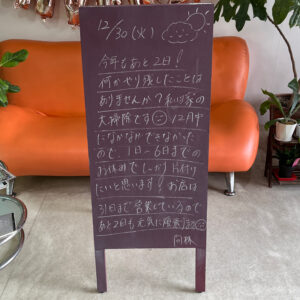 12/30(火)
今年もあと2日!
何かやり残したことは
ありませんか?私は家の
大掃除です 12月中
になかなかできなかった
ので1日~6日までの
お休みでしっかり片付け
たいと思います!お店は
31日まで営業しているので
あと2日も元気に頑張ります